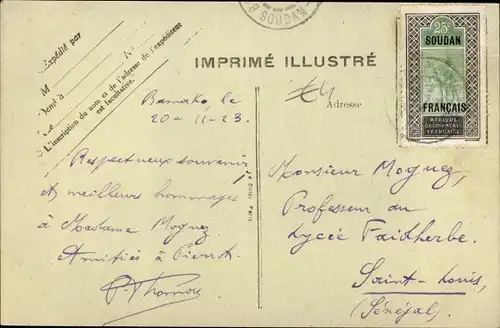 Expédié par
M
L'inscription du nom et de l'adresse de l'expéditeur
est facultative.
SOUDAN
IMPRIMÉ ILLUSTRÉ
25c
SOUDAN
FRANÇAIS
AFRIQUE
OCCIDENTALE
FRANÇAISE
€4
Adresse
Bamako, le
20-11-23.
Respectueux souvenir
et meilleurs hommages
à Madame Moguez
Amitiés à Pierrot.
Paris
Monsieur Moguez,
Professeur au
Lycée Faidherbe.
Saint-Louis,
(Sénégal).